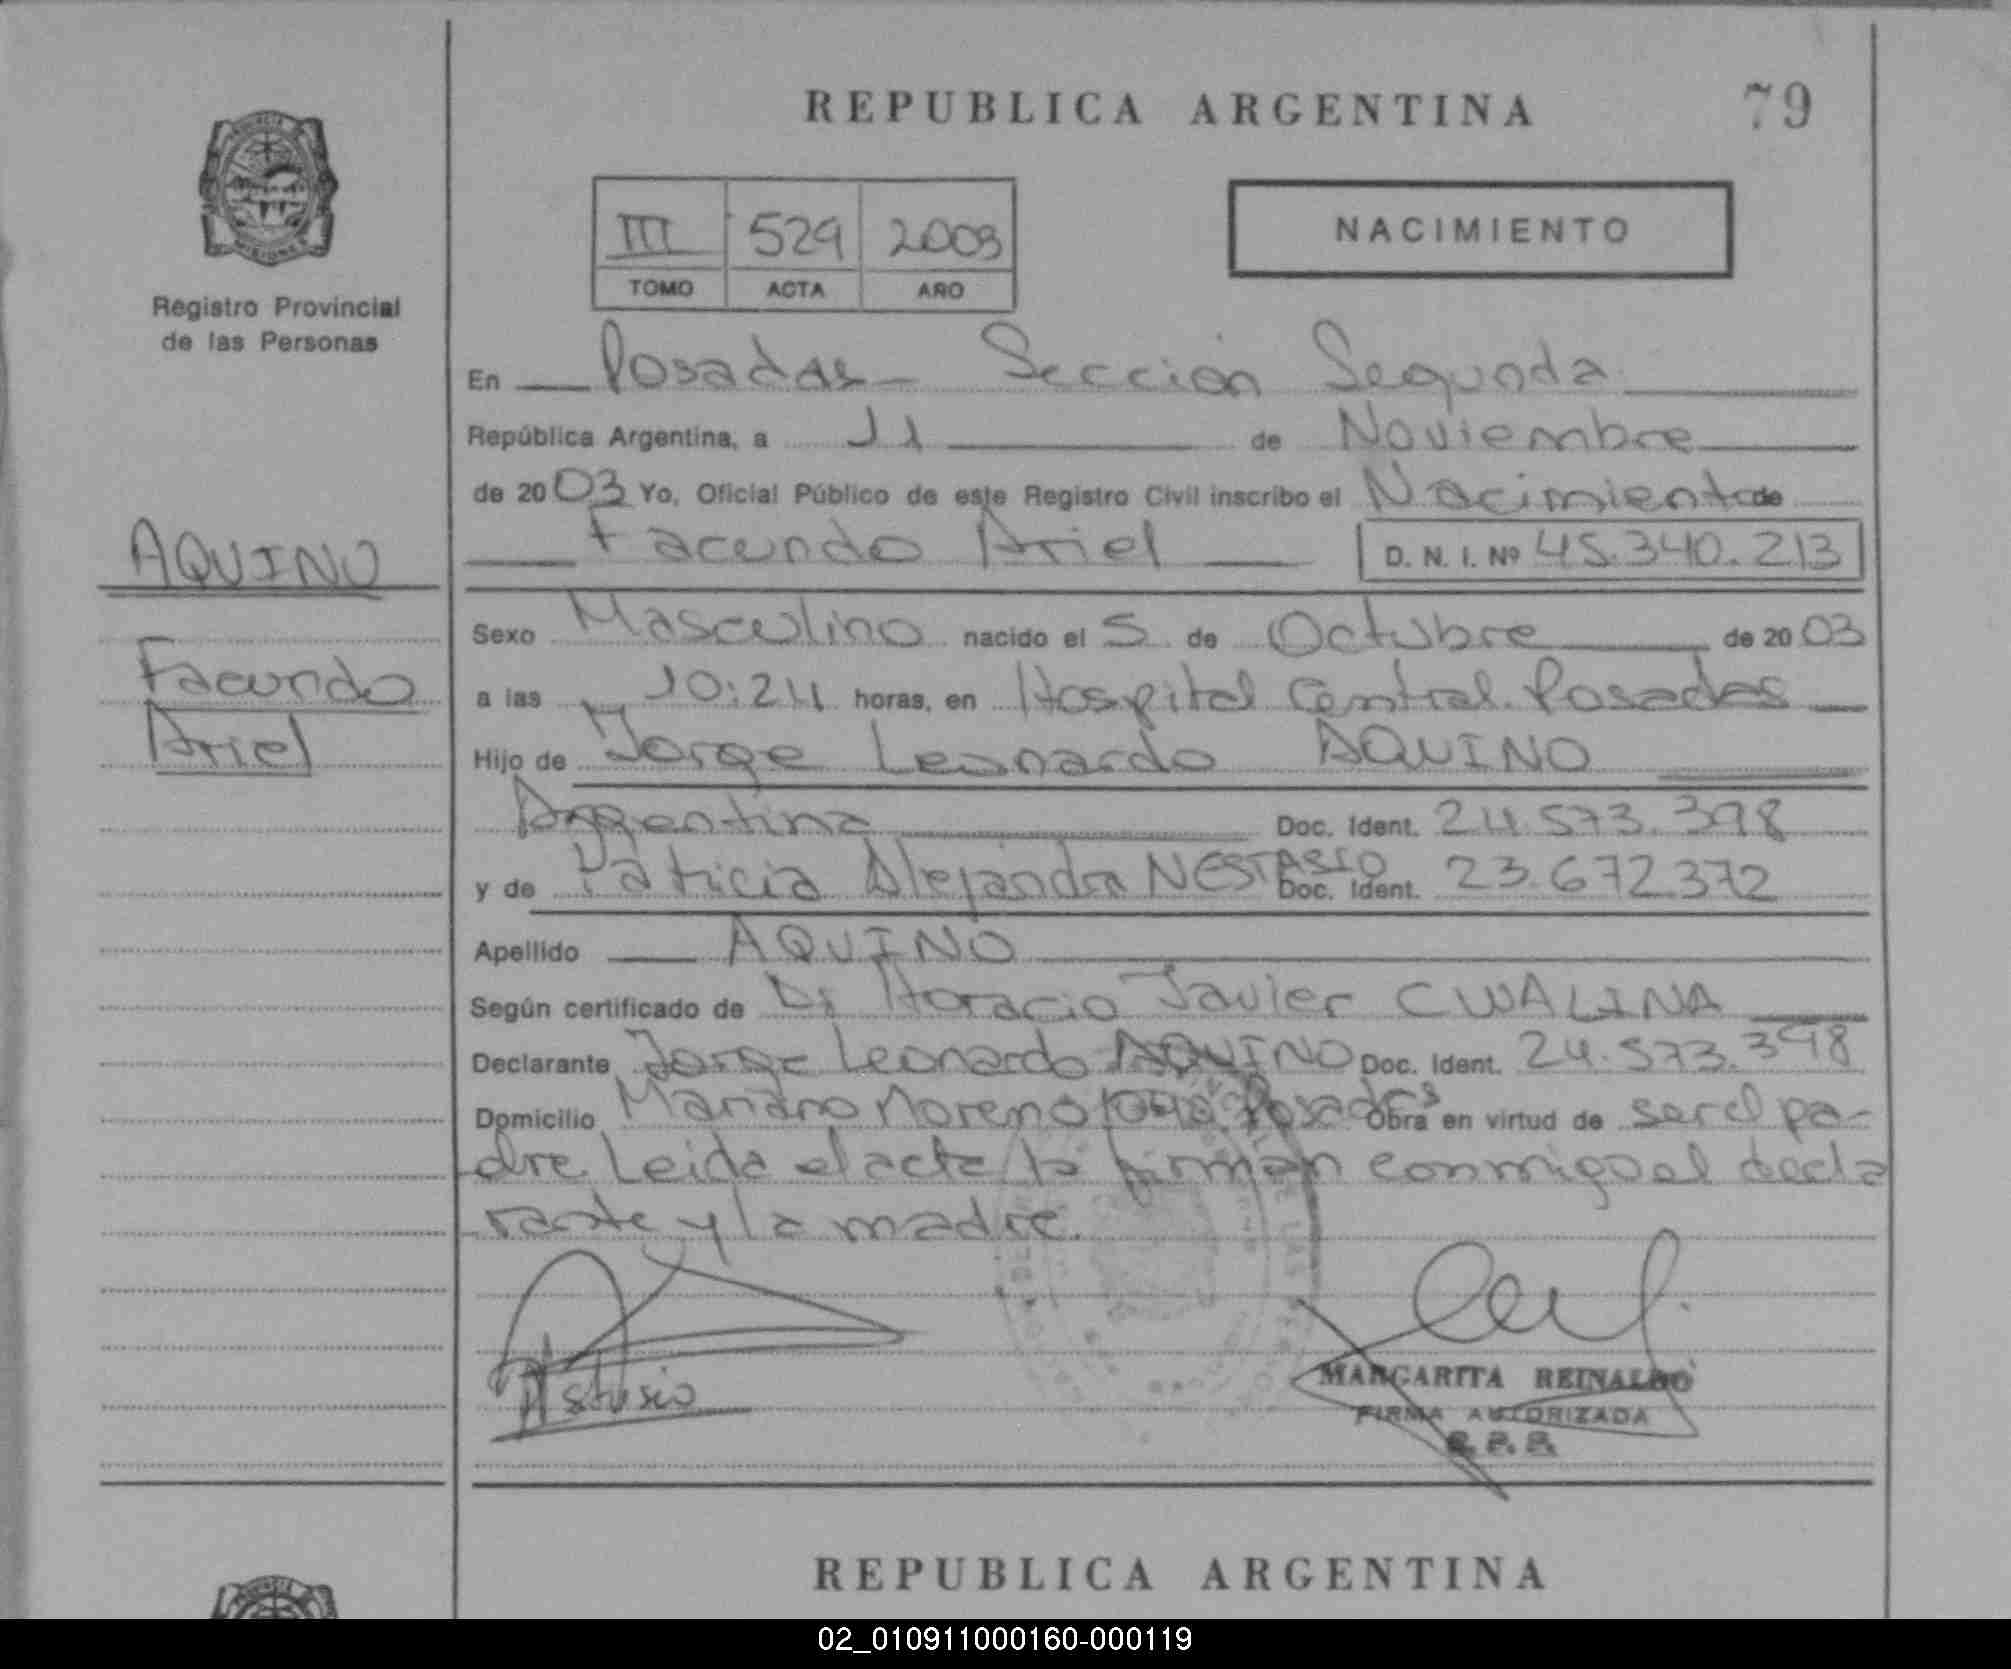 REPUBLICA ARGENTINA 79
NACIMIENTO
III 529 2003
TOMO ACTA AÑO
Registro Provincial
de las Personas
En Posadas - Sección Segunda
República Argentina, a 11 de Noviembre
de 2003 Yo, Oficial Público de este Registro Civil inscribo el Nacimiento de
Facundo Ariel D. N. I. Nº 45.340.213
AQUINO
Facundo
Ariel
Sexo Masculino nacido el 5 de Octubre de 2003
a las 10:24 horas, en Hospital Central. Posadas
Hijo de Jorge Leonardo AQUINO
Argentina Doc. Ident. 24.573.398
y de Patricia Alejandra NESTASIO Doc. Ident. 23.672.372
Apellido AQUINO
Según certificado de Dr Horacio Javier CWALINA
Declarante Jorge Leonardo AQUINO Doc. Ident. 24.573.398
Domicilio Mariano Moreno Posadas Obra en virtud de ser el pa-
dre. Leida el acta la firman conmigo el decla
rante y la madre.
MARGARITA REINALDO
FIRMA AUTORIZADA
REPUBLICA ARGENTINA
02_010911000160-000119